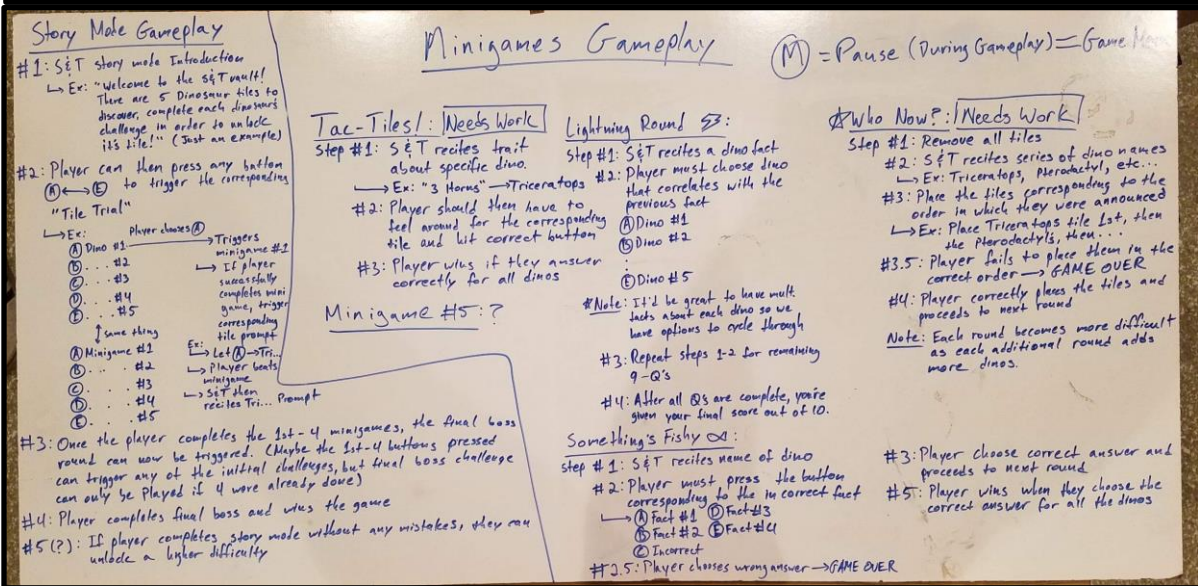 Story Mode Gameplay
#1: S&T story mode Introduction
↳ Ex: "Welcome to the S&T vault!
There are 5 Dinosaur tiles to
discover, complete each dinosaur's
challenge in order to unlock
it's tile!" (Just an example)
#2: Player can then press any button
Ⓐ ↔ Ⓔ to trigger the corresponding
"Tile Trial"
↳ Ex: Player chooses Ⓐ
Ⓐ Dino #1 → Triggers
minigame #1
Ⓑ . . . #2
Ⓒ . . . #3
Ⓓ . . . #4
Ⓔ . . . #5
↳ If player
successfully
completes mini
game, trigger
corresponding
tile prompt
↕ same thing
Ⓐ Minigame #1
Ⓑ . . . #2
Ⓒ . . . #3
Ⓓ . . . #4
Ⓔ . . . #5
Ex:
↳ Let Ⓐ → Tri...
↳ Player beats
minigame
↳ S&T then
recites Tri... Prompt
#3: Once the player completes the 1st-4 minigames, the final boss
round can now be triggered. (Maybe the 1st-4 buttons pressed
can trigger any of the initial challenges, but final boss challenge
can only be Played if 4 were already done)
#4: Player completes final boss and wins the game
#5(?): If player completes story mode without any mistakes, they can
unlock a higher difficulty
Minigames Gameplay
Ⓜ = Pause (During Gameplay) = Game
Tac-Tiles!: Needs Work
Step #1: S&T recites trait
about specific dino.
↳ Ex: "3 Horns" → Triceratops
#2: Player should then have to
feel around for the corresponding
tile and hit correct button
#3: Player wins if they answer
correctly for all dinos
Minigame #5:?
Lightning Round:
Step #1: S&T recites a dino fact
#2: Player must choose dino
that correlates with the
previous fact
Ⓐ Dino #1
Ⓑ Dino #2
:
Ⓔ Dino #5
*Note: It'd be great to have mult.
facts about each dino so we
have options to cycle through
#3: Repeat steps 1-2 for remaining
9-Q's
#4: After all Qs are complete, you're
given your final score out of 10.
Something's Fishy:
step #1: S&T recites name of dino
#2: Player must press the button
corresponding to the in correct fact
↳ Ⓐ Fact #1 Ⓓ Fact #3
Ⓑ Fact #2 Ⓔ Fact #4
Ⓒ Incorrect
#2.5: Player chooses wrong answer → GAME OVER
#3: Player choose correct answer and
proceeds to next round
#5: Player wins when they choose the
correct answer for all the dinos
☆Who Now?: Needs Work
Step #1: Remove all tiles
#2: S&T recites series of dino names
↳ Ex: Triceratops, Pterodactyl, etc...
#3: Place the tiles corresponding to the
order in which they were announced
↳ Ex: Place Triceratops tile 1st, then
the Pterodactyls, then...
#3.5: Player fails to place them in the
correct order → GAME OVER
#4: Player correctly places the tiles and
proceeds to next round
Note: Each round becomes more difficult
as each additional round adds
more dinos.